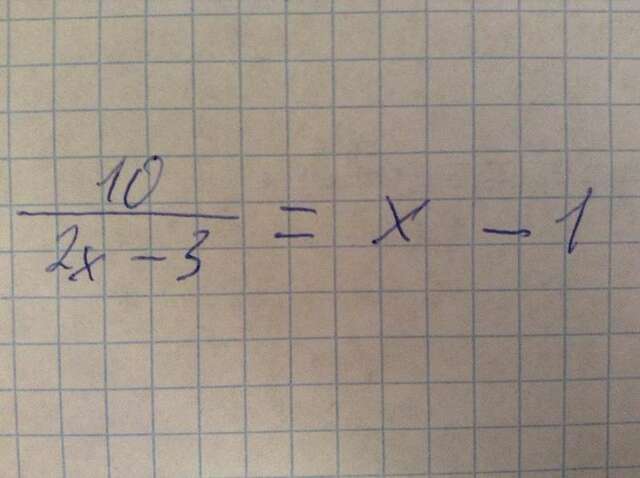 10
2x - 3 = x - 1